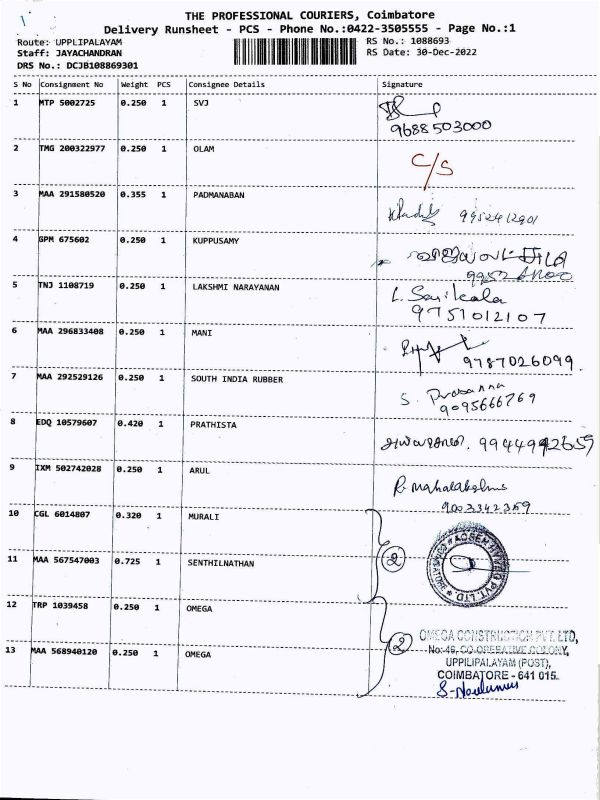 THE PROFESSIONAL COURIERS, Coimbatore
Delivery Runsheet - PCS - Phone No.:0422-3505555 - Page No.:1
Route: UPPLIPALAYAM
RS No.: 1088693
Staff: JAYACHANDRAN
RS Date: 30-Dec-2022
DRS No.: DCJB108869301
S No Consignment No Weight PCS Consignee Details Signature
1 MTP 5002725 0.250 1 SVJ
9688503000
2 TMG 200322977 0.250 1 OLAM C/S
3 MAA 291580520 0.355 1 PADMANABAN 9952412901
4 GPM 675602 0.250 1 KUPPUSAMY
5 TNJ 1108719 0.250 1 LAKSHMI NARAYANAN L. Sasikala
9751012107
6 MAA 296833408 0.250 1 MANI
9787026099.
7 MAA 292529126 0.250 1 SOUTH INDIA RUBBER S. Prasanna
9095666769
8 EDQ 10579607 0.420 1 PRATHISTA 9944992659
9 IXM 502742028 0.250 1 ARUL R. Mahalakshmi
9003342369
10 CGL 6014807 0.320 1 MURALI
11 MAA 567547003 0.725 1 SENTHILNATHAN 2
12 TRP 1039458 0.250 1 OMEGA
13 MAA 568940120 0.250 1 OMEGA 2
OMEGA CONSTRUCTION PVT. LTD,
No:46, CO-OPERATIVE COLONY,
UPPILIPALAYAM (POST),
COIMBATORE - 641 015.